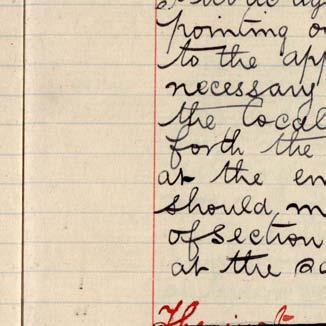 pointing o
to the app
necessary
the local
forth the
at the en
should, m
of section
at the